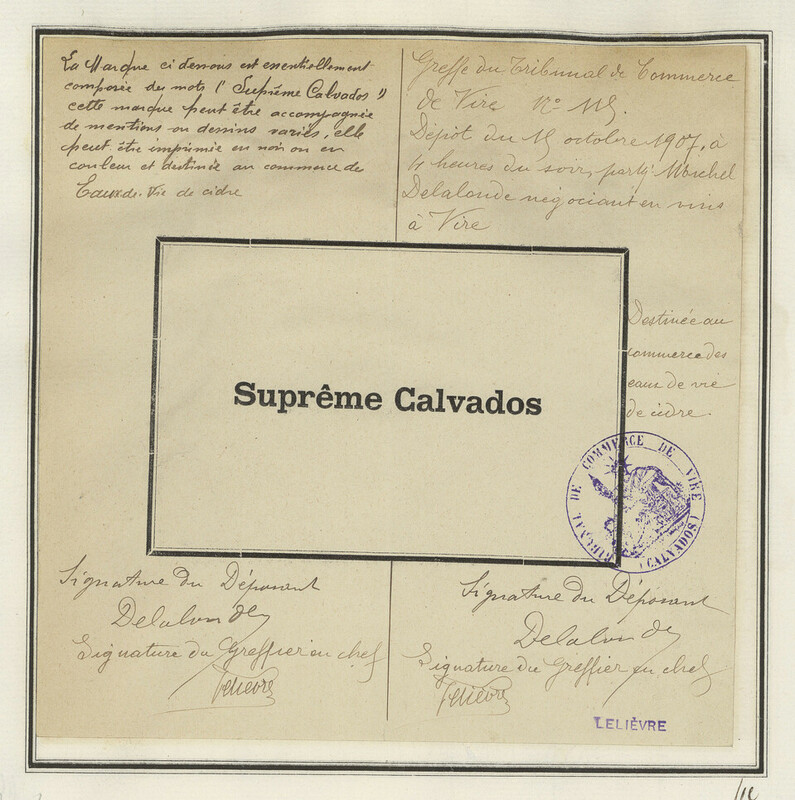 La Marque ci dessous est essentiellement
composée des mots (" Suprême Calvados ")
cette marque peut être accompagnée
de mentions ou dessins variés, elle
peut être imprimée en noir ou en
couleur et destinée au commerce des
Eaux-de-Vie de cidre
Greffe du Tribunal de Commerce
de Vire N°
Dépôt du 15 octobre 1907, à
4 heures du soir, par Mr Michel
Delalonde négociant en vins
à Vire
Destinée au
commerce des
eaux de vie
de cidre.
Suprême Calvados
TRIBUNAL DE COMMERCE DE VIRE (CALVADOS)
Signature du Déposant
Delalonde
Signature du Greffier en chef
Lelièvre
Signature du Déposant
Delalonde
Signature du Greffier en chef
Lelièvre
LELIÈVRE